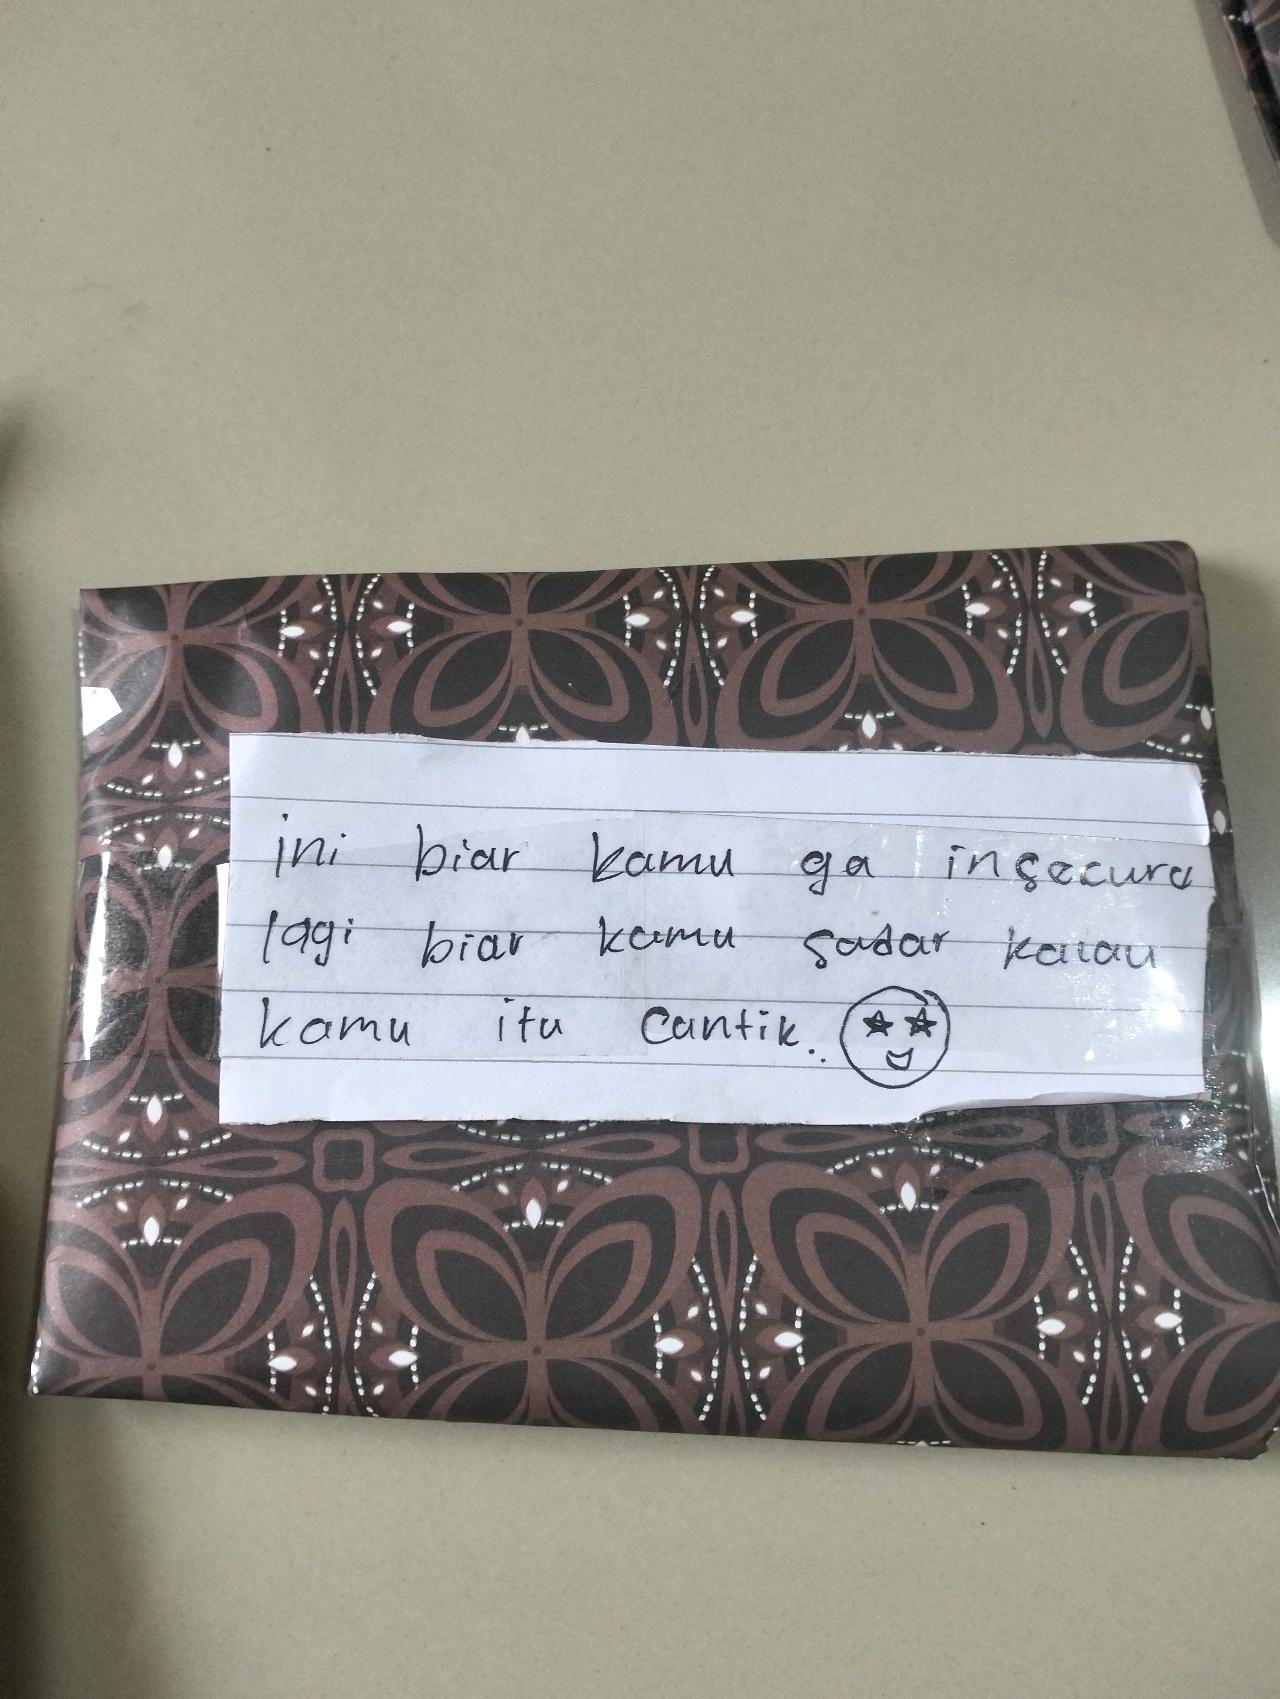 ini biar kamu ga insecure
lagi biar kamu sadar kalau
kamu itu cantik..